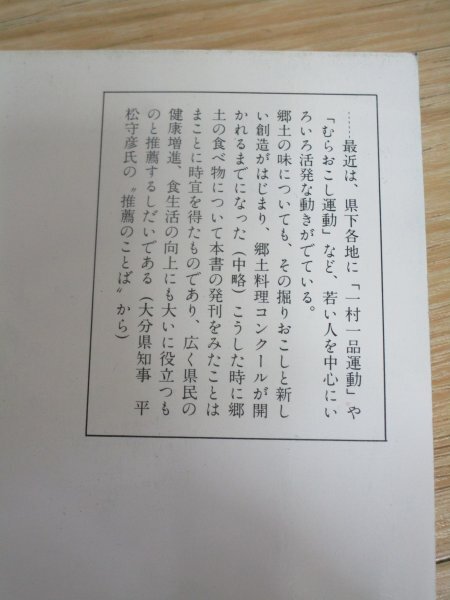 ……最近は、県下各地に「一村一品運動」や
「むらおこし運動」など、若い人を中心にい
ろいろ活発な動きがでている。
郷土の味についても、その掘りおこしと新し
い創造がはじまり、郷土料理コンクールが開
かれるまでになった（中略）こうした時に郷
土の食べ物について本書の発刊をみたことは
まことに時宜を得たものであり、広く県民の
健康増進、食生活の向上にも大いに役立つも
のと推薦するしだいである（大分県知事　平
松守彦氏の〝推薦のことば〟から）